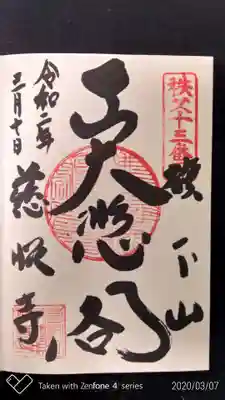 秩父十三番
旗下山
大悲閣
慈眼寺
令和二年
三月七日
Taken with Zenfone 4 series
2020/03/07